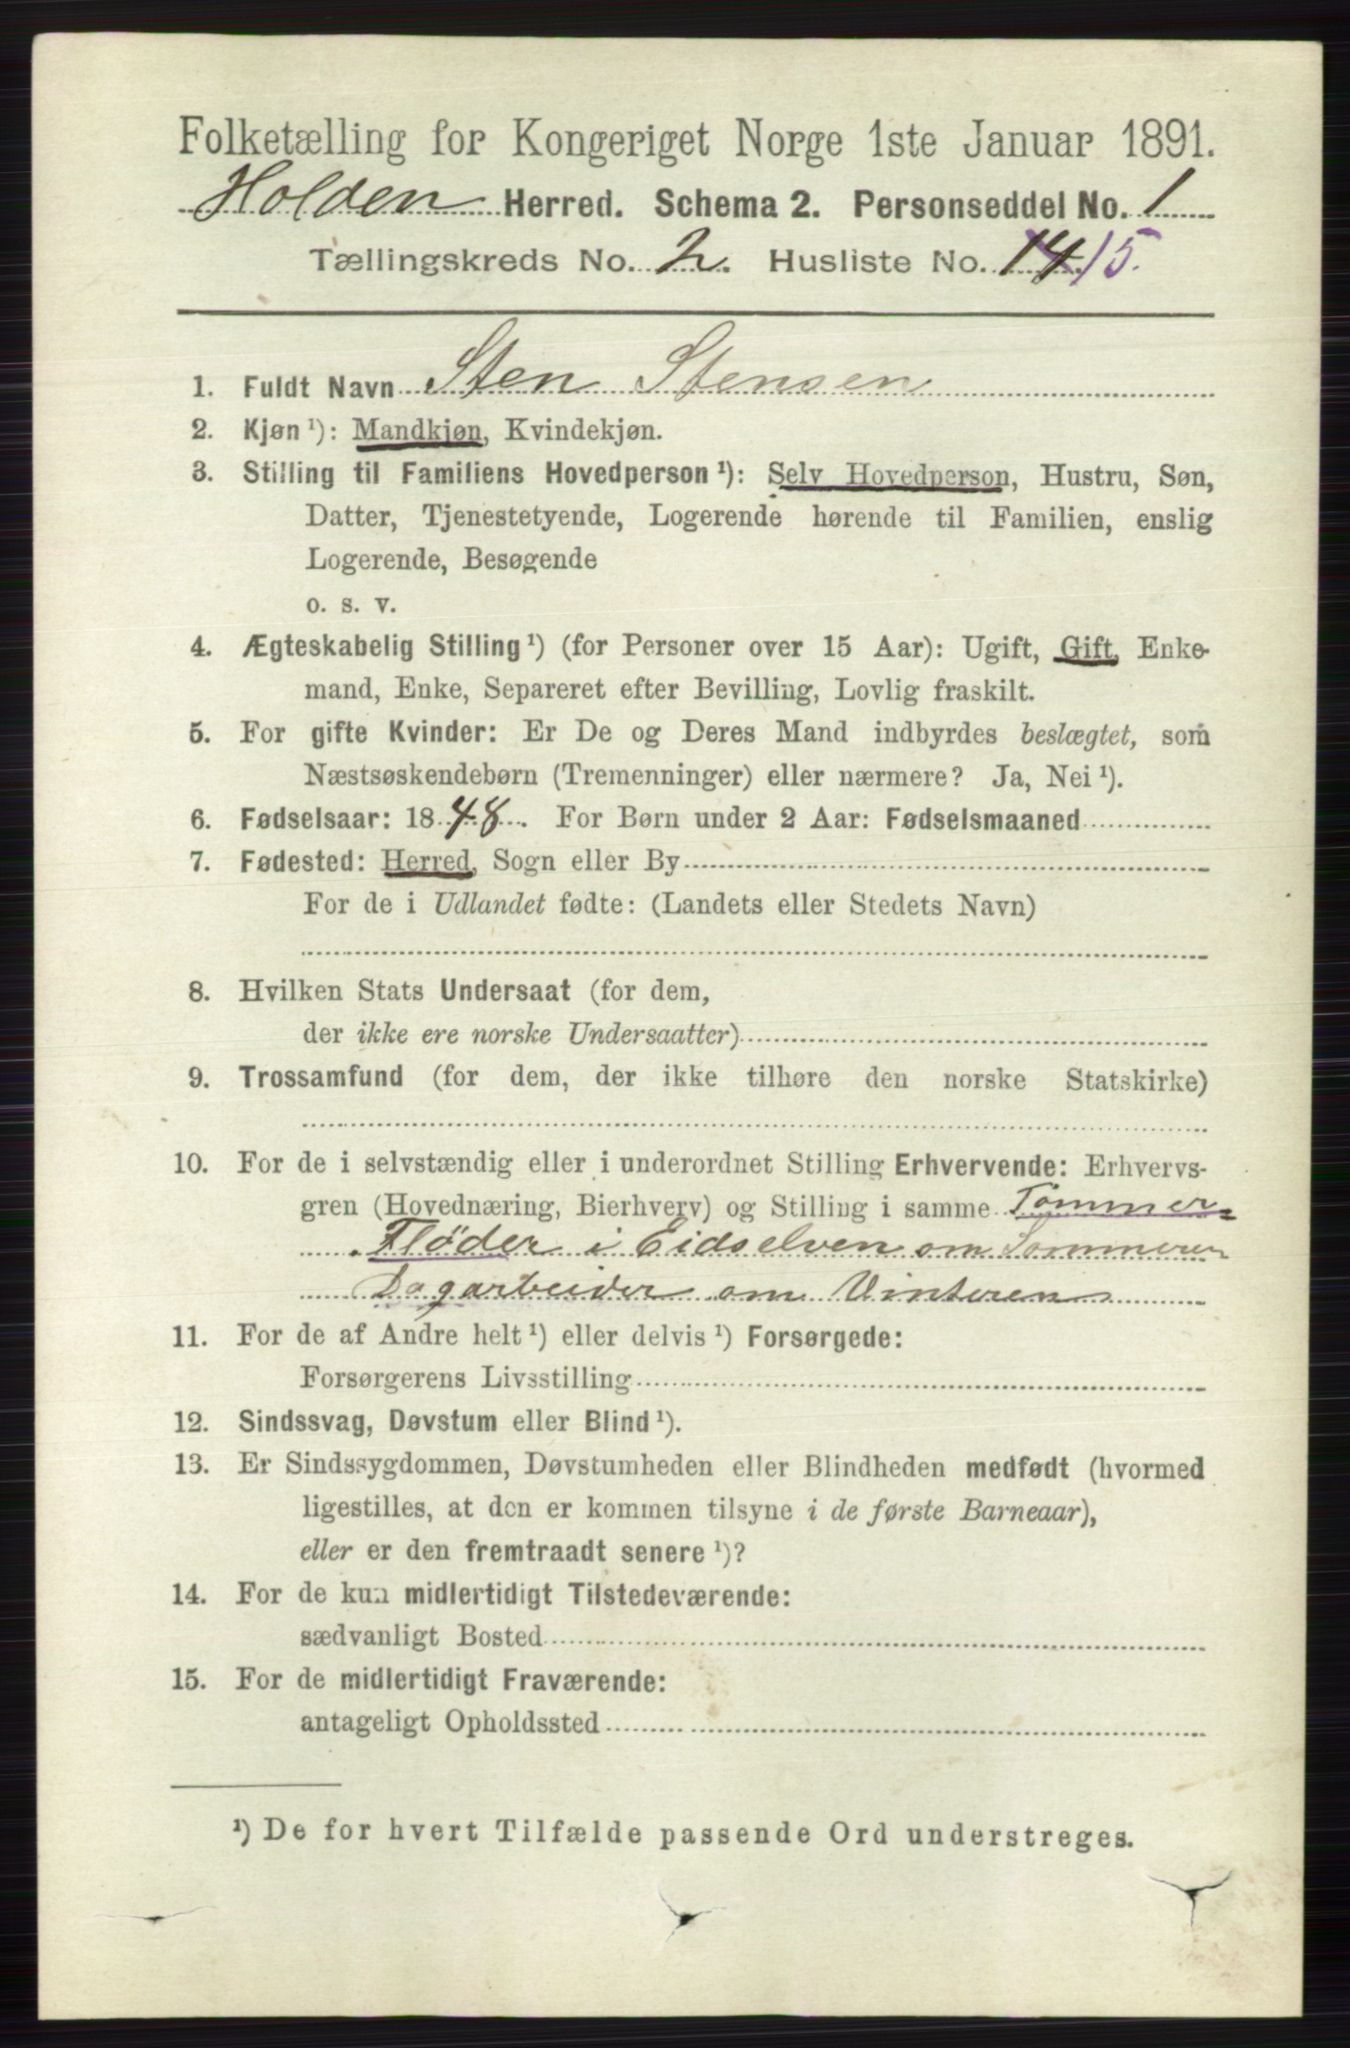 Folketælling for Kongeriget Norge 1ste Januar 1891.
Holden Herred. Schema 2. Personseddel No. 1
Tællingskreds No. 2. Husliste No. 14 15.
1. Fuldt Navn Sten Stensen
2. Kjøn ¹): Mandkjøn, Kvindekjøn.
3. Stilling til Familiens Hovedperson ¹): Selv Hovedperson, Hustru, Søn,
Datter, Tjenestetyende, Logerende hørende til Familien, enslig
Logerende, Besøgende
o. s. v.
4. Ægteskabelig Stilling ¹) (for Personer over 15 Aar): Ugift, Gift, Enke-
mand, Enke, Separeret efter Bevilling, Lovlig fraskilt.
5. For gifte Kvinder: Er De og Deres Mand indbyrdes beslægtet, som
Næstsøskendebørn (Tremenninger) eller nærmere? Ja, Nei ¹).
6. Fødselsaar: 1848. For Børn under 2 Aar: Fødselsmaaned
7. Fødested: Herred, Sogn eller By
For de i Udlandet fødte: (Landets eller Stedets Navn)
8. Hvilken Stats Undersaat (for dem,
der ikke ere norske Undersaatter)
9. Trossamfund (for dem, der ikke tilhøre den norske Statskirke)
10. For de i selvstændig eller i underordnet Stilling Erhvervende: Erhvervs-
gren (Hovednæring, Bierhverv) og Stilling i samme Tømmer-
Fløder i Eidselven om Sommeren
Dagarbeider om Vinteren
11. For de af Andre helt ¹) eller delvis ¹) Forsørgede:
Forsørgerens Livsstilling
12. Sindssvag, Døvstum eller Blind ¹).
13. Er Sindssygdommen, Døvstumheden eller Blindheden medfødt (hvormed
ligestilles, at den er kommen tilsyne i de første Barneaar),
eller er den fremtraadt senere ¹)?
14. For de kun midlertidigt Tilstedeværende:
sædvanligt Bosted
15. For de midlertidigt Fraværende:
antageligt Opholdssted
¹) De for hvert Tilfælde passende Ord understreges.